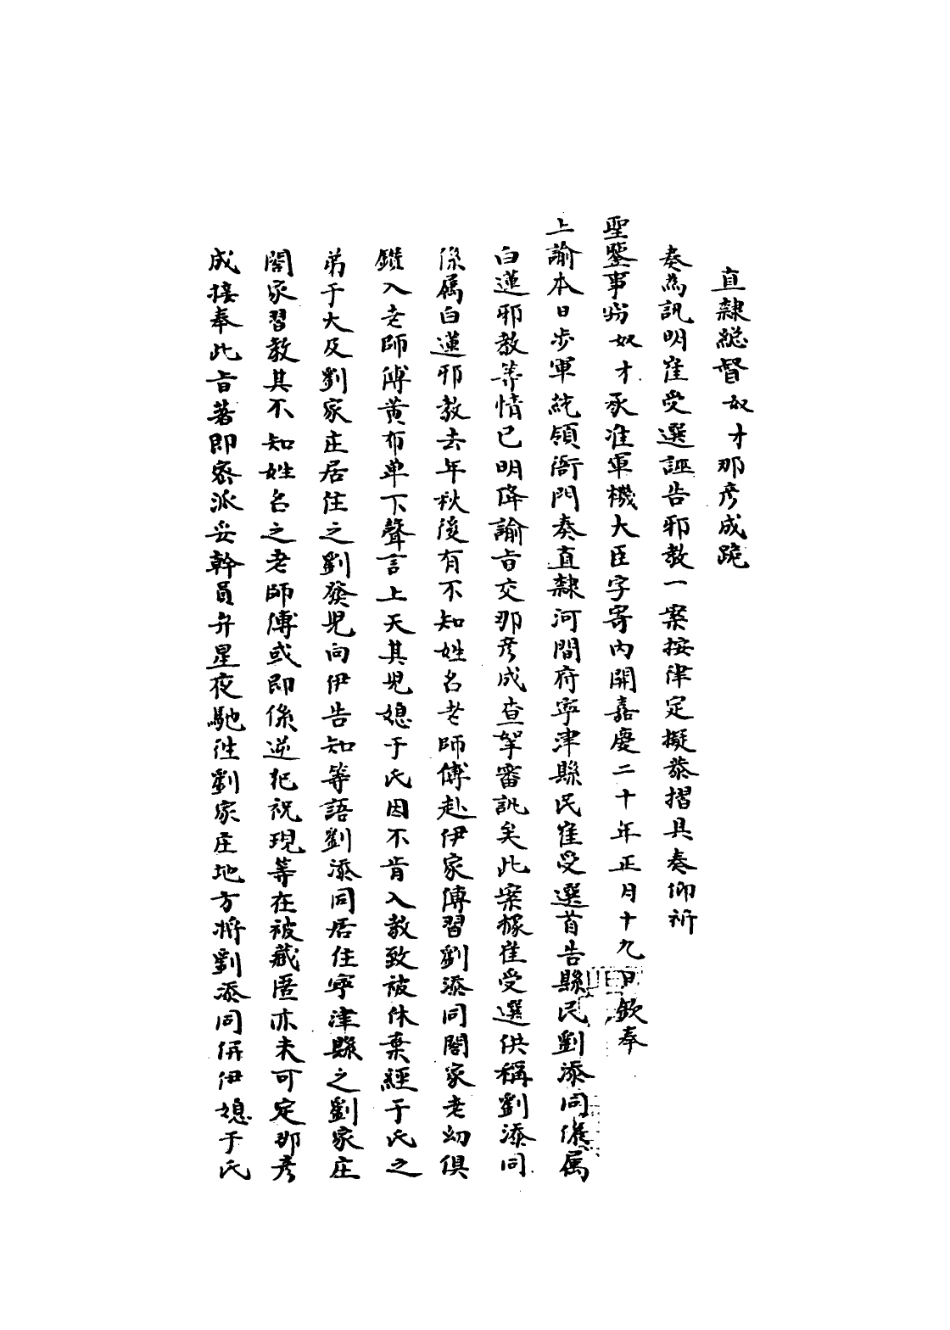 直隸總督奴才那彥成跪
奏為訊明崔受選誣告邪教一案按律定擬恭摺具奏仰祈
聖鑒事竊奴才承准軍機大臣字寄內開嘉慶二十年正月十九日欽奉
上諭本日步軍統領衙門奏直隸河間府寧津縣民崔受選首告縣民劉添同係屬
白蓮邪教等情已明降諭旨交那彥成查拏審訊矣此案據崔受選供稱劉添同
係屬白蓮邪教去年秋後有不知姓名老師傅赴伊家傳習劉添同闔家老幼俱
鑽入老師傅黃布單下聲言上天其兒媳于氏因不肯入教致被休棄經于氏之
弟于大及劉家庄居住之劉發兒向伊告知等語劉添同居住寧津縣之劉家庄
闔家習教其不知姓名之老師傅或即係逆犯祝現等在被藏匿亦未可定那彥
成接奉此旨著即密派妥幹員弁星夜馳往劉家庄地方將劉添同併伊媳于氏